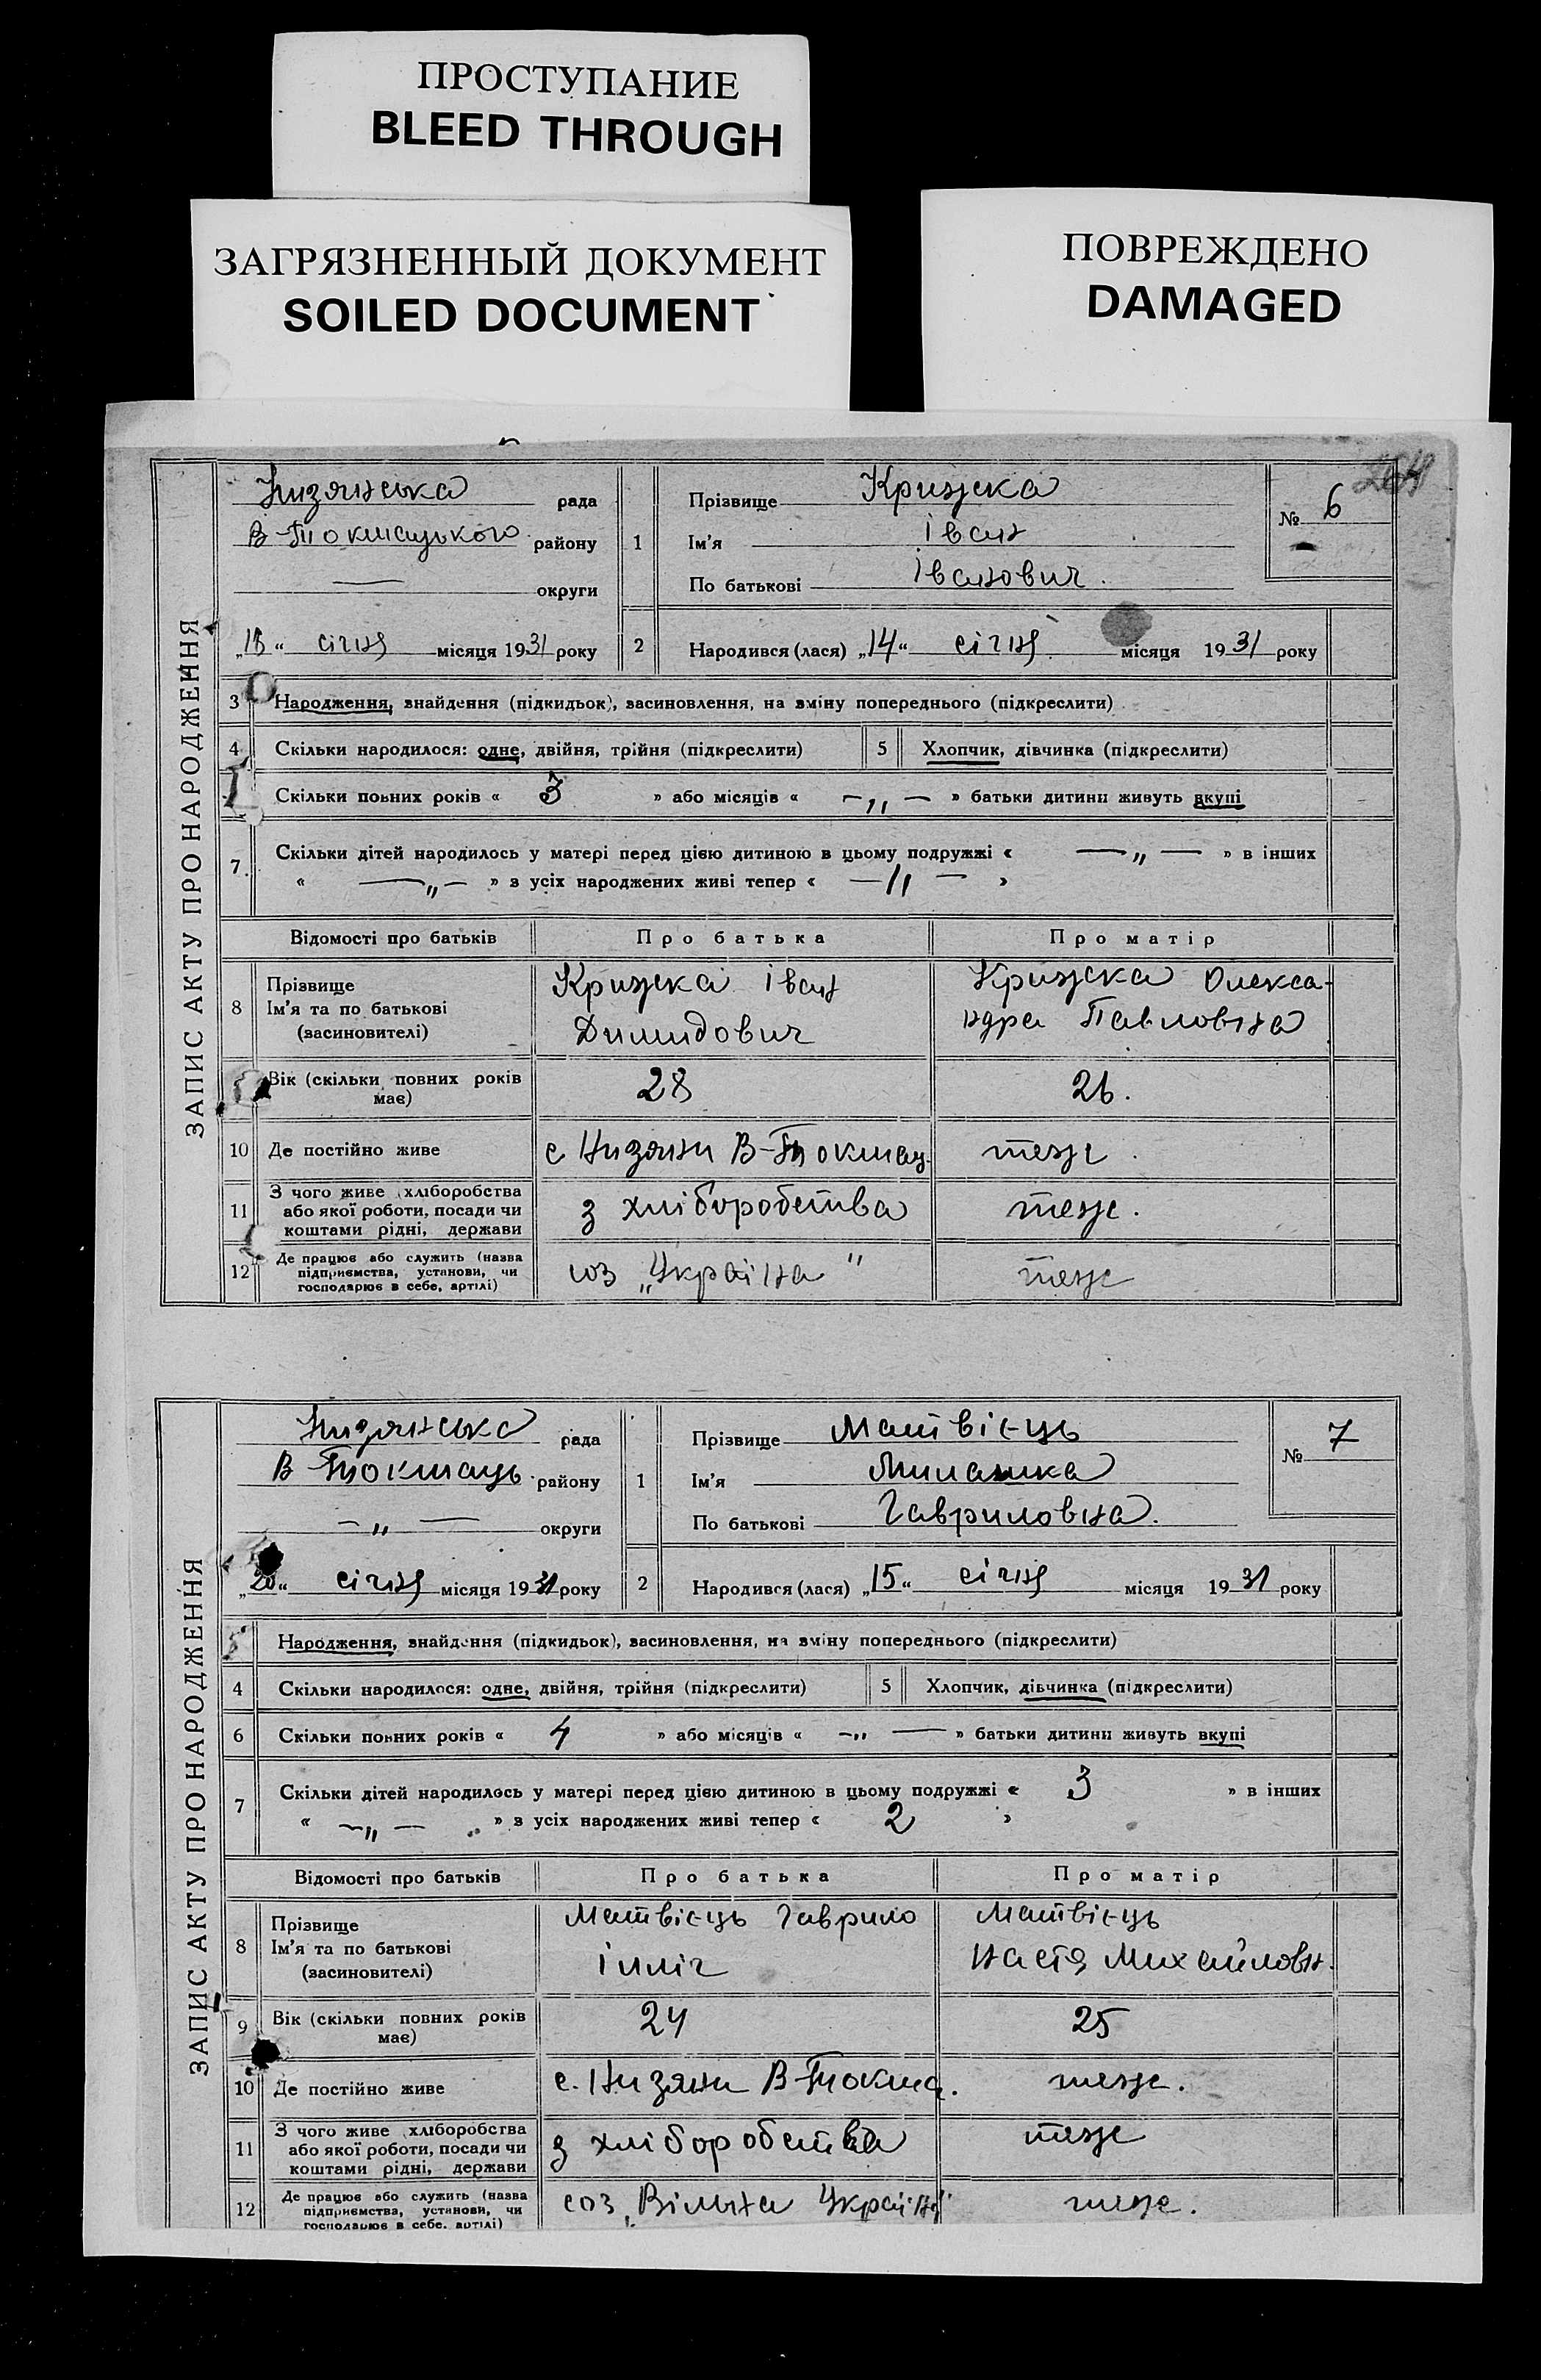 ПРОСТУПАНИЕ
BLEED THROUGH
ЗАГРЯЗНЕННЫЙ ДОКУМЕНТ
SOILED DOCUMENT
ПОВРЕЖДЕНО
DAMAGED
ЗАПИС АКТУ ПРО НАРОДЖЕННЯ
Низянська рада
В-Токмацького району
— округи
1
Прізвище Крижска
Ім'я Іван
По батькові Іванович.
№ 6
„18“ січня місяця 1931 року
2
Народився (лася) „14“ січня місяця 1931 року
3 Народження, знайдення (підкидьок), засиновлення, на зміну попереднього (підкреслити)
4 Скільки народилося: одне, двійня, трійня (підкреслити) 5 Хлопчик, дівчинка (підкреслити)
Скільки повних років « 3 » або місяців « —„— » батьки дитини живуть вкупі
7. Скільки дітей народилось у матері перед цією дитиною в цьому подружжі « —„— » в інших
« —„— » з усіх народжених живі тепер « —„— »
Відомості про батьків Про батька Про матір
8 Прізвище
Ім'я та по батькові
(засиновителі)
Крижска Іван
Димидович
Крижска Олекса-
ндра Павловна
Вік (скільки повних років
має)
28
26.
10 Де постійно живе с Низяни В-Токмац. теже.
11 З чого живе (хліборобства
або якої роботи, посади чи
коштами рідні, держави
з хліборобства теже.
12 Де працює або служить (назва
підприємства, установи, чи
господарює в себе, артілі)
соз „Україна“ теже
ЗАПИС АКТУ ПРО НАРОДЖЕННЯ
Низянська рада
В-Токмаць. району
—„— округи
1
Прізвище Матвієць
Ім'я Миланка
По батькові Гавриловна.
№ 7
„20“ січня місяця 1931 року
2
Народився (лася) „15“ січня місяця 1931 року
Народження, знайдення (підкидьок), засиновлення, на зміну попереднього (підкреслити)
4 Скільки народилося: одне, двійня, трійня (підкреслити) 5 Хлопчик, дівчинка (підкреслити)
6 Скільки повних років « 4 » або місяців « —„— » батьки дитини живуть вкупі
7 Скільки дітей народилось у матері перед цією дитиною в цьому подружжі « 3 » в інших
« —„— » з усіх народжених живі тепер « 2 »
Відомості про батьків Про батька Про матір
8 Прізвище
Ім'я та по батькові
(засиновителі)
Матвієць Гаврило
Ілліч
Матвієць
Настя Михайловн.
9 Вік (скільки повних років
має)
24
25
10 Де постійно живе с. Низяни В-Токма. теже.
11 З чого живе (хліборобства
або якої роботи, посади чи
коштами рідні, держави
з хліборобства теже
12 Де працює або служить (назва
підприємства, установи, чи
господарює в себе, артілі)
соз „Вільна Україна“ теже.